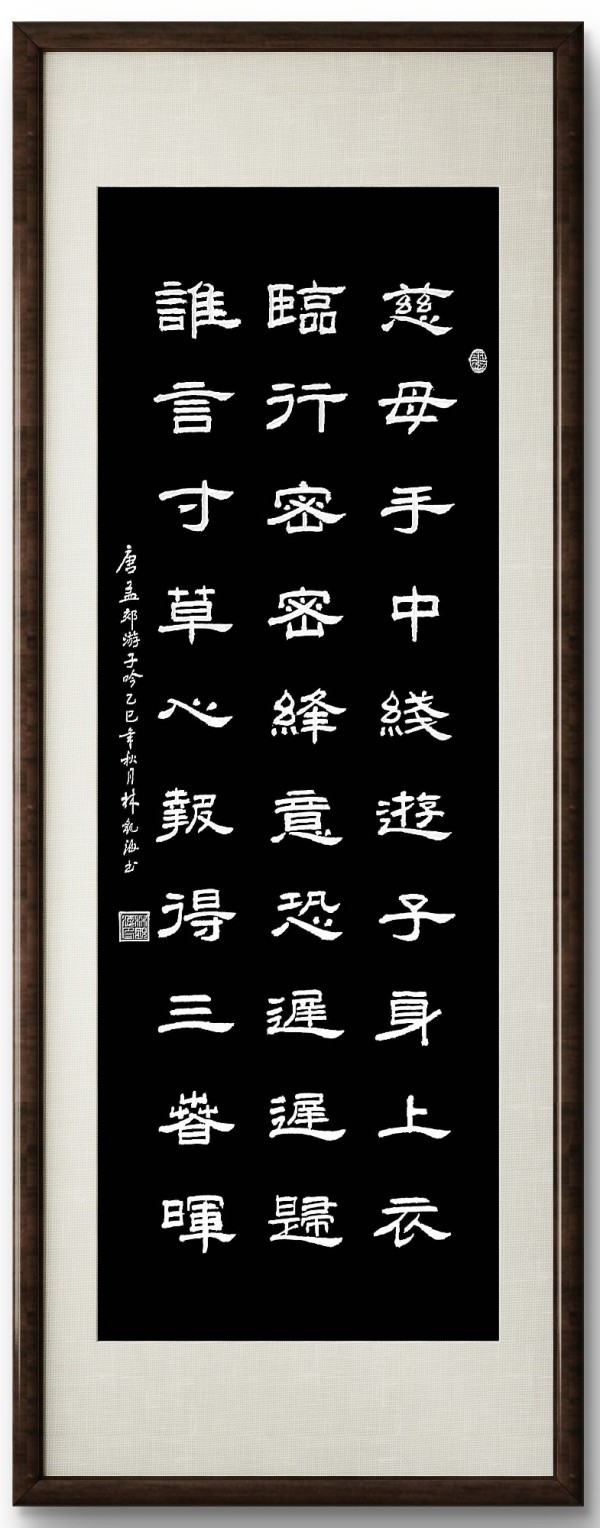 慈母手中綫遊子身上衣
臨行密密縫意恐遲遲歸
誰言寸草心報得三春暉
唐孟郊游子吟乙巳年秋月林乾海书